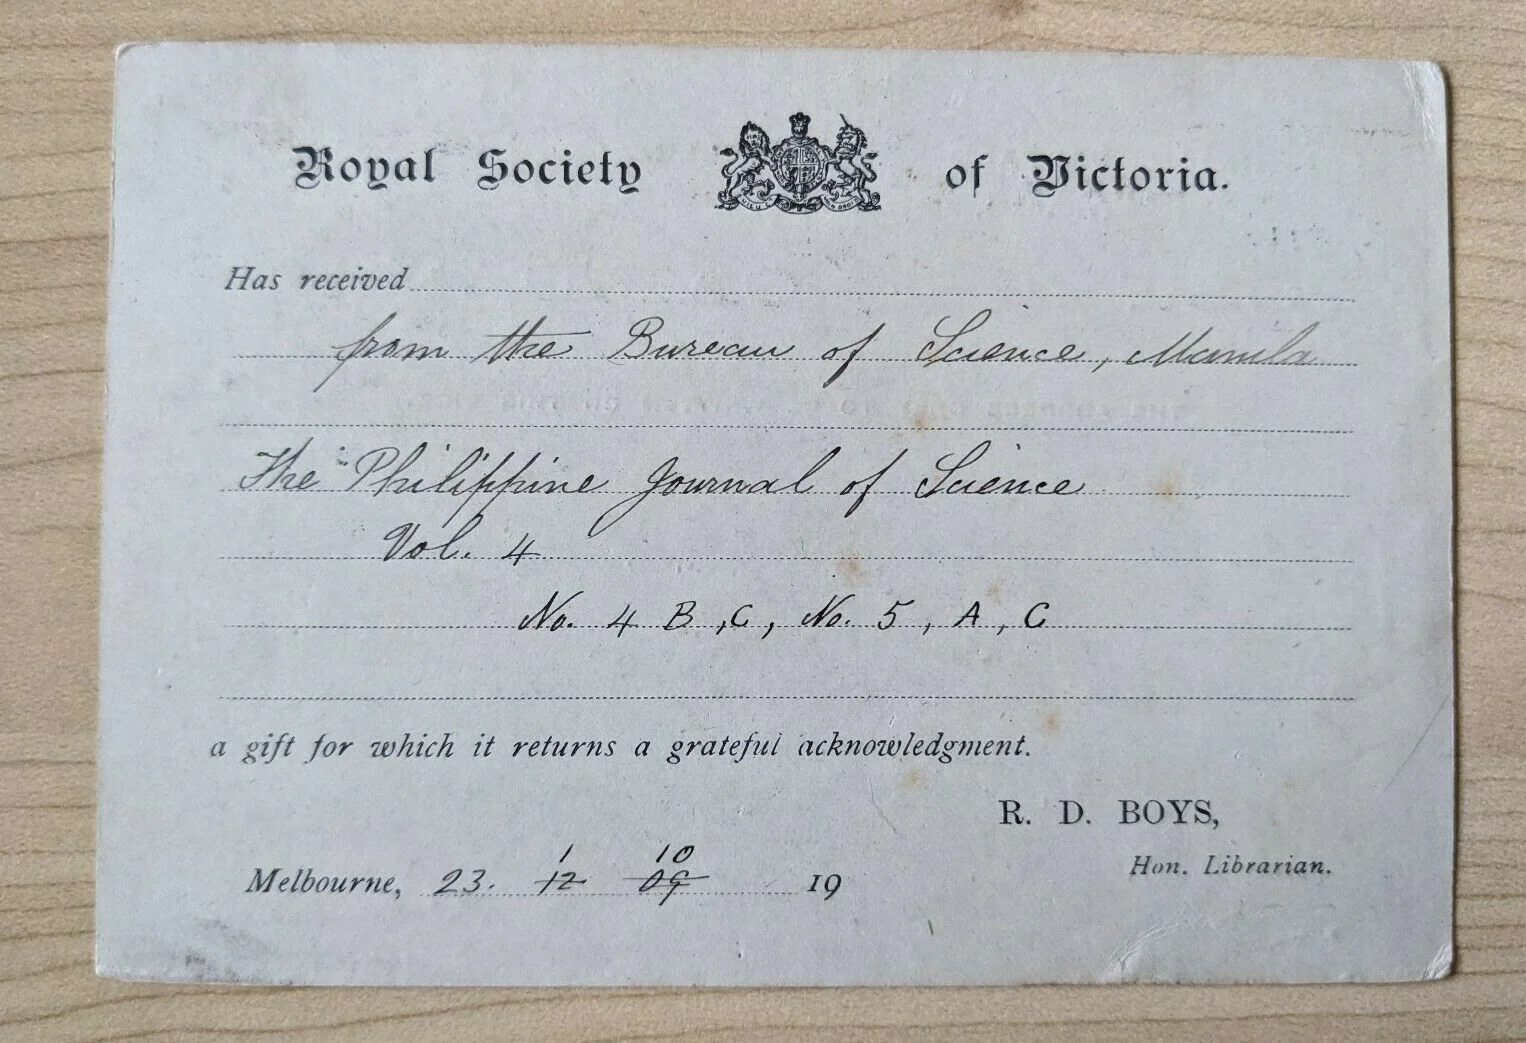 Royal Society of Victoria.
Has received
from the Bureau of Science, Manila
The Philippine Journal of Science
Vol. 4
No. 4 B, C, No. 5, A, C
a gift for which it returns a grateful acknowledgment.
R. D. BOYS,
Hon. Librarian.
1 10
Melbourne, 23. 12 09 19